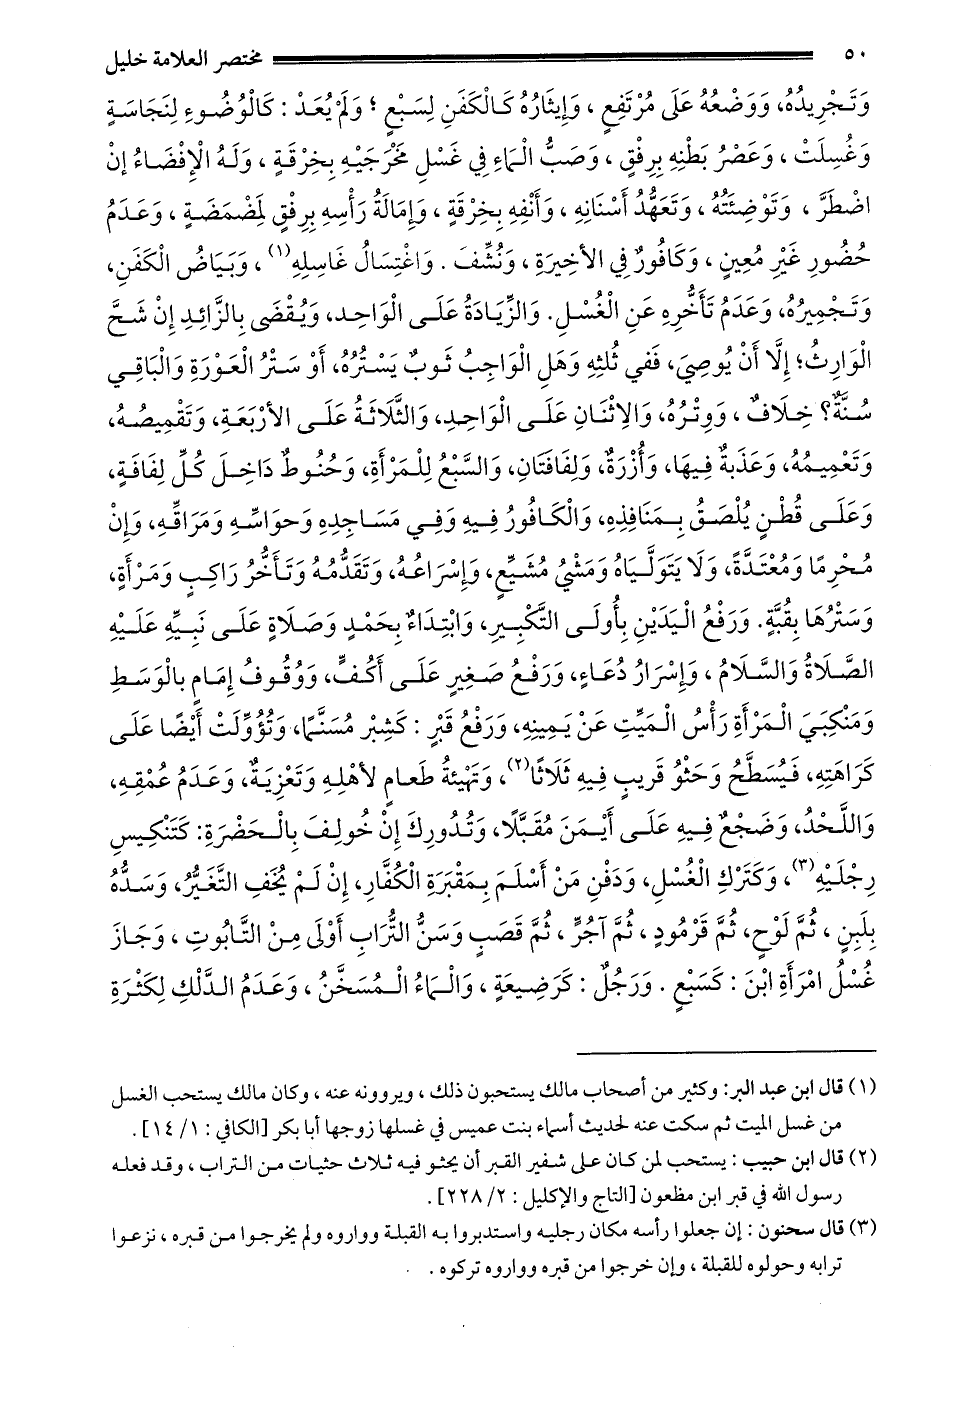 ٥٠ مختصر العلامة خليل
وَتَجْرِيدُهُ، وَوَضْعُهُ عَلَى مُرْتَفِعٍ ، وَإِيثَارُهُ كَالْكَفَنِ لِسَبْعٍ ؛ وَلَمْ يُعَدْ : كَالْوُضُوءِ لِنَجَاسَةٍ
وَغُسِلَتْ ، وَعَصْرُ بَطْنِهِ بِرِفْقٍ ، وَصَبُّ الْمَاءِ فِي غَسْلِ مَخْرَجَيْهِ بِخِرْقَةٍ ، وَلَهُ الْإِفْضَاءُ إِنْ
اضْطَرَّ ، وَتَوْضِئَتُهُ ، وَتَعَهُّدُ أَسْنَانِهِ ، وَأَنْفِهِ بِخِرْقَةٍ ، وَإِمَالَةُ رَأْسِهِ بِرِفْقٍ لِمَضْمَضَةٍ ، وَعَدَمُ
حُضُورِ غَيْرِ مُعِينٍ ، وَكَافُورٌ فِي الأَخِيرَةِ ، وَنُشِّفَ . وَاغْتِسَالُ غَاسِلِهِ(١) ، وَبَيَاضُ الْكَفَنِ،
وَتَجْمِيرُهُ، وَعَدَمُ تَأَخُّرِهِ عَنِ الْغُسْلِ. وَالزِّيَادَةُ عَلَى الْوَاحِدِ، وَيُقْضَى بِالزَّائِدِ إِنْ شَحَّ
الْوَارِثُ؛ إِلَّا أَنْ يُوصِيَ، فَفِي ثُلُثِهِ وَهَلِ الْوَاجِبُ ثَوبٌ يَسْتُرُهُ، أَوْ سَتْرُ الْعَوْرَةِ وَالْبَاقِي
سُنَّةٌ؟ خِلَافٌ ، وَوِتْرُهُ، وَالِاثْنَانِ عَلَى الْوَاحِدِ، وَالثَّلَاثَةُ عَلَى الأَرْبَعَةِ، وَتَقْمِيصُهُ،
وَتَعْمِيمُهُ، وَعَذَبَةٌ فِيهَا، وَأُزْرَةٌ، وَلِفَافَتَانِ، وَالسَّبْعُ لِلْمَرْأَةِ، وَحُنُوطٌ دَاخِلَ كُلِّ لِفَافَةٍ،
وَعَلَى قُطْنٍ يُلْصَقُ بِمَنَافِذِهِ، وَالْكَافُورُ فِيهِ وَفِي مَسَاجِدِهِ وَحَوَاسِّهِ وَمَرَاقِّهِ، وَإِنْ
مُحْرِمًا وَمُعْتَدَّةً، وَلَا يَتَوَلَّيَاهُ وَمَشْيُ مُشَيِّعٍ، وَإِسْرَاعُهُ، وَتَقَدُّمُهُ وَتَأَخُّرُ رَاكِبٍ وَمَرْأَةٍ،
وَسَتْرُهَا بِقُبَّةٍ. وَرَفْعُ الْيَدَيْنِ بِأُولَى التَّكْبِيرِ، وَابْتِدَاءٌ بِحَمْدٍ وَصَلَاةٍ عَلَى نَبِيِّهِ عَلَيْهِ
الصَّلَاةُ وَالسَّلَامُ ، وَإِسْرَارُ دُعَاءٍ، وَرَفْعُ صَغِيرٍ عَلَى أَكُفٍّ، وَوُقُوفُ إِمَامٍ بِالْوَسَطِ
وَمَنْكِبَيِ الْمَرْأَةِ رَأْسُ الْمَيِّتِ عَنْ يَمِينِهِ، وَرَفْعُ قَبْرٍ : كَشِبْرٍ مُسَنَّمًا، وَتُؤُوِّلَتْ أَيْضًا عَلَى
كَرَاهَتِهِ، فَيُسَطَّحُ وَحَثْوُ قَرِيبٍ فِيهِ ثَلَاثًا(٢)، وَتَهْيِئَةُ طَعَامٍ لأَهْلِهِ وَتَعْزِيَةٌ، وَعَدَمُ عُمْقِهِ،
وَاللَّحْدُ، وَضَجْعٌ فِيهِ عَلَى أَيْمَنَ مُقَبَّلًا، وَتُدُورِكَ إِنْ خُولِفَ بِالْحَضْرَةِ: كَتَنْكِيسِ
رِجْلَيْهِ(٣)، وَكَتَرْكِ الْغُسْلِ، وَدَفْنِ مَنْ أَسْلَمَ بِمَقْبَرَةِ الْكُفَّارِ، إِنْ لَمْ يُخَفِ التَّغَيُّرُ، وَسَدُّهُ
بِلَبِنٍ ، ثُمَّ لَوْحٍ، ثُمَّ قَرْمُودٍ ، ثُمَّ آجُرٍّ ، ثُمَّ قَصَبٍ وَسَنُّ التُّرَابِ أَوْلَى مِنْ التَّابُوتِ ، وَجَازَ
غُسْلُ امْرَأَةٍ ابْنَ : كَسَبْعٍ . وَرَجُلٌ : كَرَضِيعَةٍ ، وَالْمَاءُ الْمُسَخَّنُ ، وَعَدَمُ الدَّلْكِ لِكَثْرَةِ
(١) قال ابن عبد البر: وكثير من أصحاب مالك يستحبون ذلك ، ويروونه عنه ، وكان مالك يستحب الغسل
من غسل الميت ثم سكت عنه لحديث أسماء بنت عميس في غسلها زوجها أبا بكر [الكافي : ١/ ١٤] .
(٢) قال ابن حبيب : يستحب لمن كان على شفير القبر أن يحثو فيه ثلاث حثيات من التراب ، وقد فعله
رسول الله في قبر ابن مظعون [التاج والإكليل : ٢/ ٢٢٨] .
(٣) قال سحنون : إن جعلوا رأسه مكان رجليه واستدبروا به القبلة وواروه ولم يخرجوا من قبره ، نزعوا
ترابه وحولوه للقبلة ، وإن خرجوا من قبره وواروه تركوه .